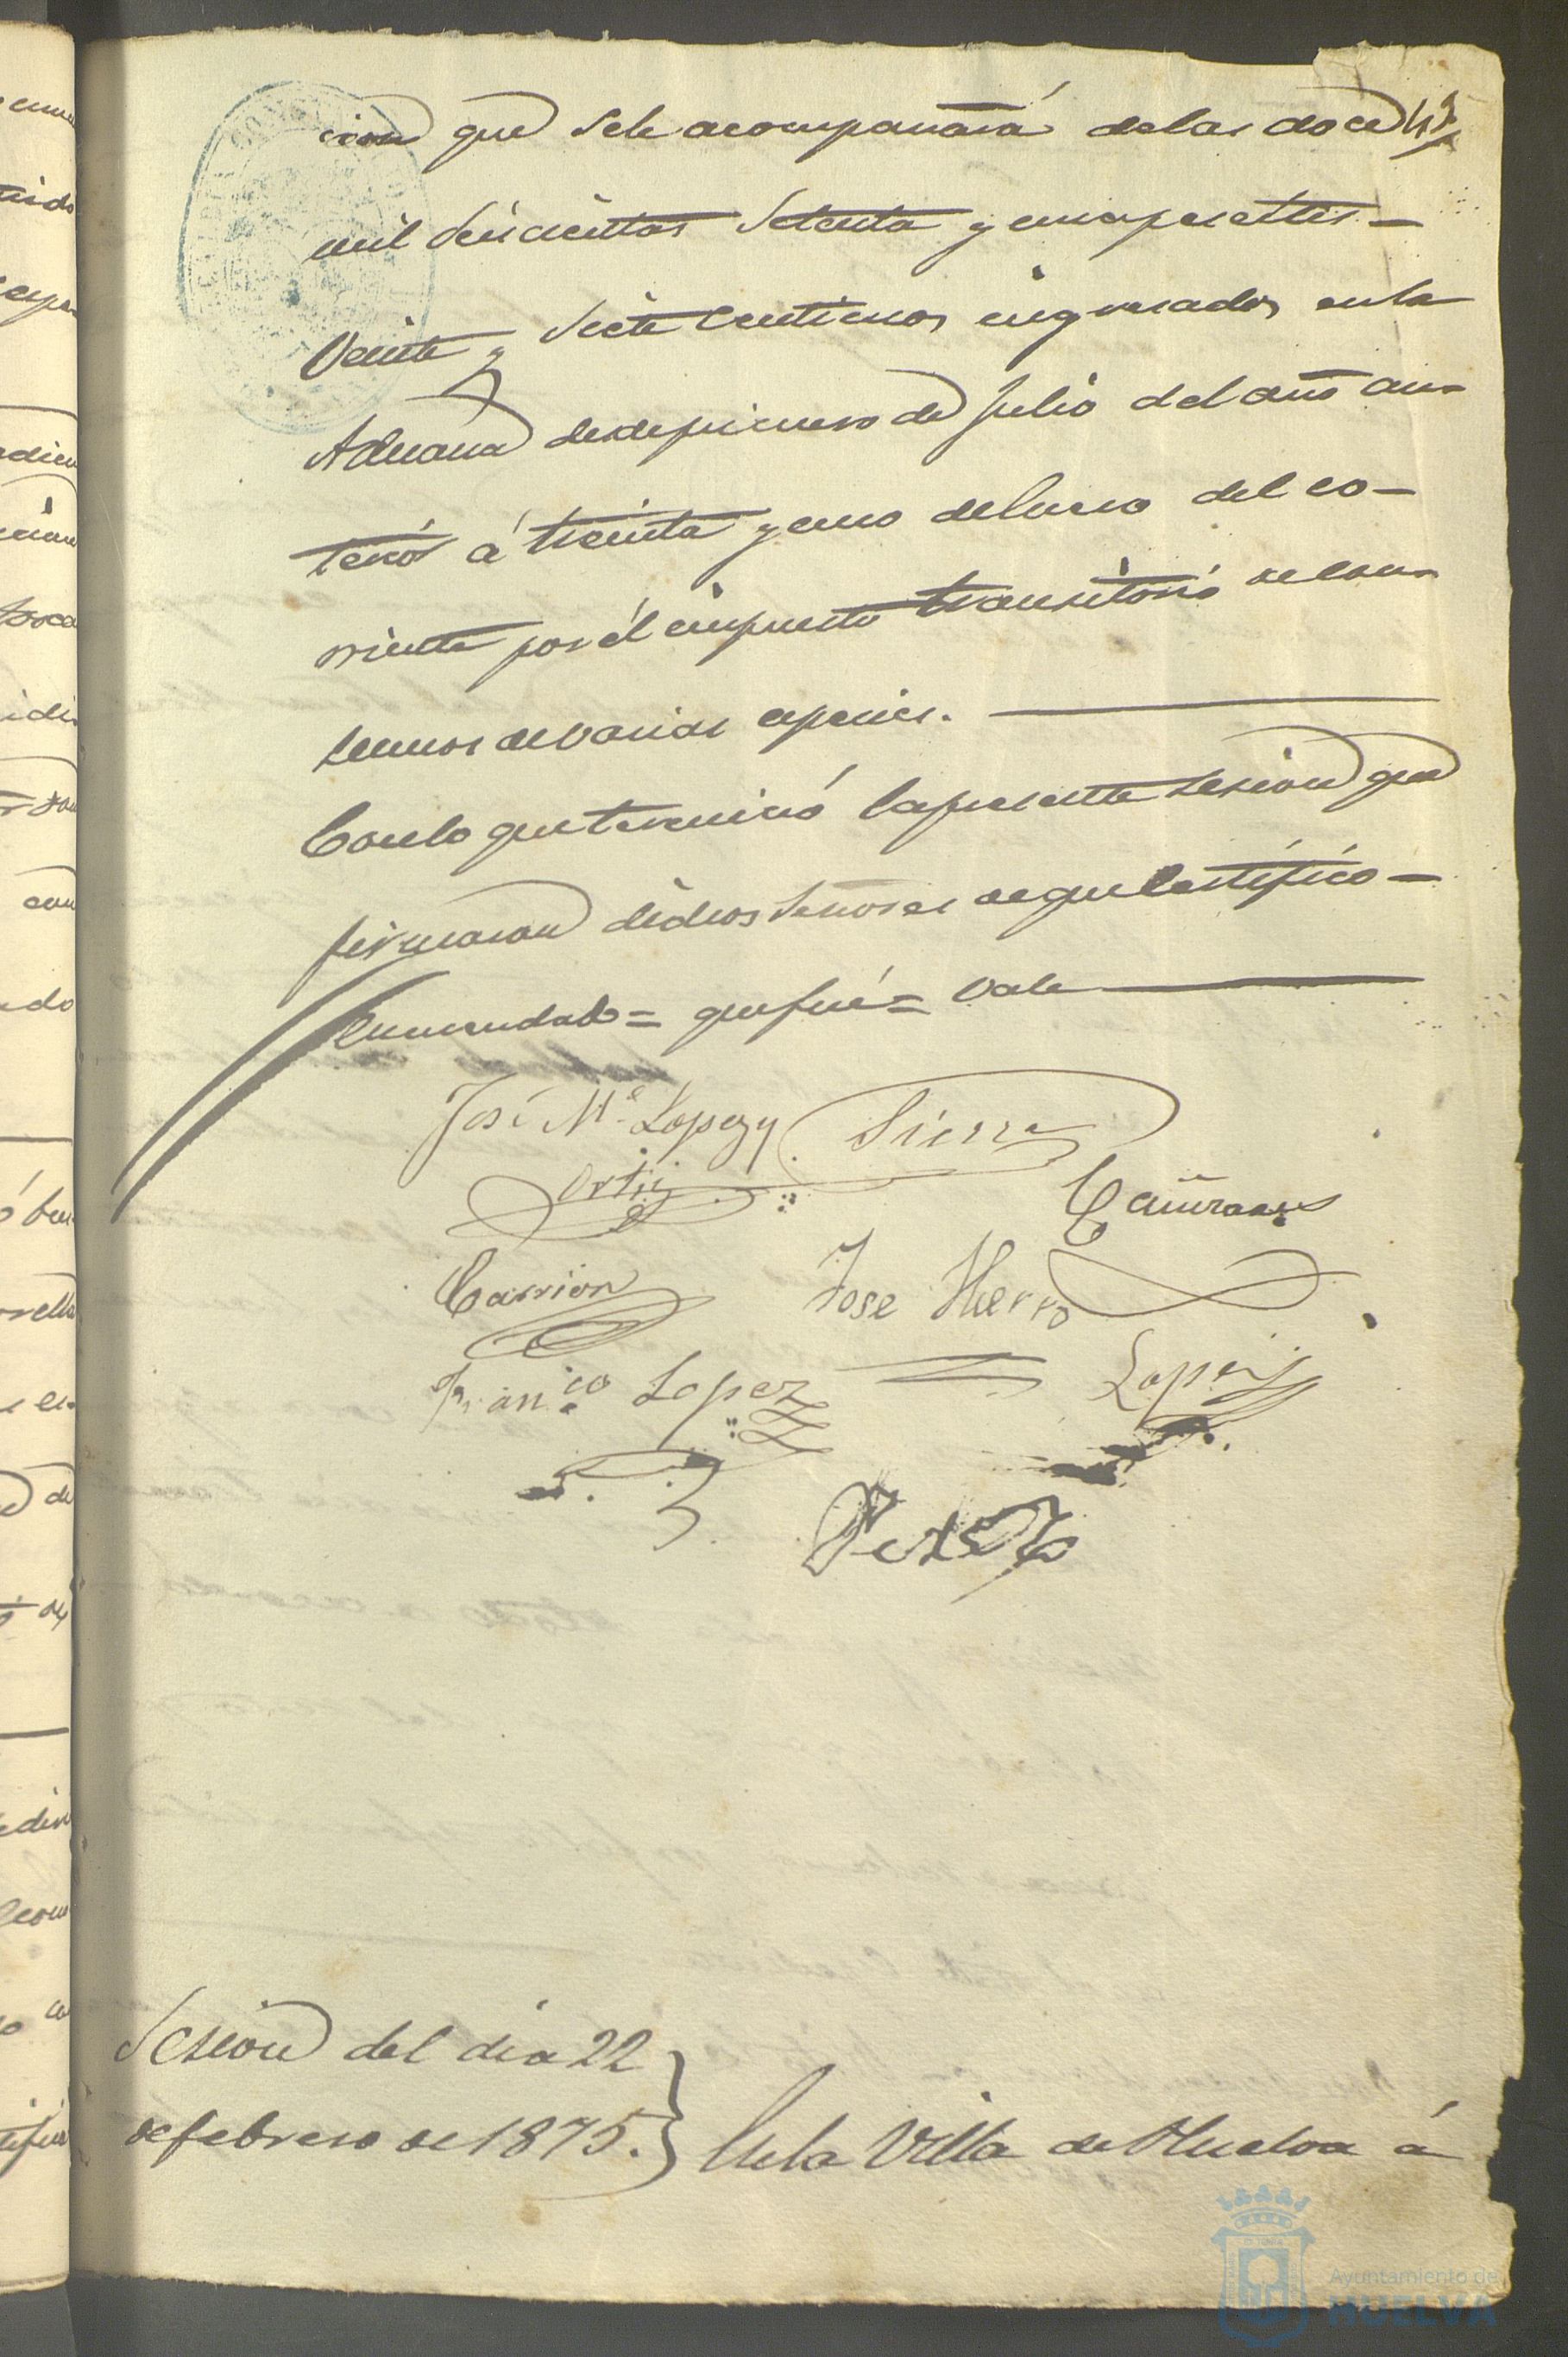 cion que sele acompañará delas doce
mil Seiscientas Setenta y una pesettas =
Veinte y Siete Centimos ingresados en la
Aduana desde primero de Julio del año an=
terior á treinta y uno de Enero del co=
rriente por él impuesto transitorio de con=
sumos de varias especies.
Con lo que terminó la presente sesion que
firmaron dichos Señores de que Certifico =
Enmendado = que fué = Vale
José Mª Lopez y Sierra
Ortiz
Cañizares
Carrion Jose Hierro
Franco Lopez Lopez
Sesion del dia 22
de febrero de 1875. } En la Villa de Huelva á
Ayuntamiento de
HUELVA